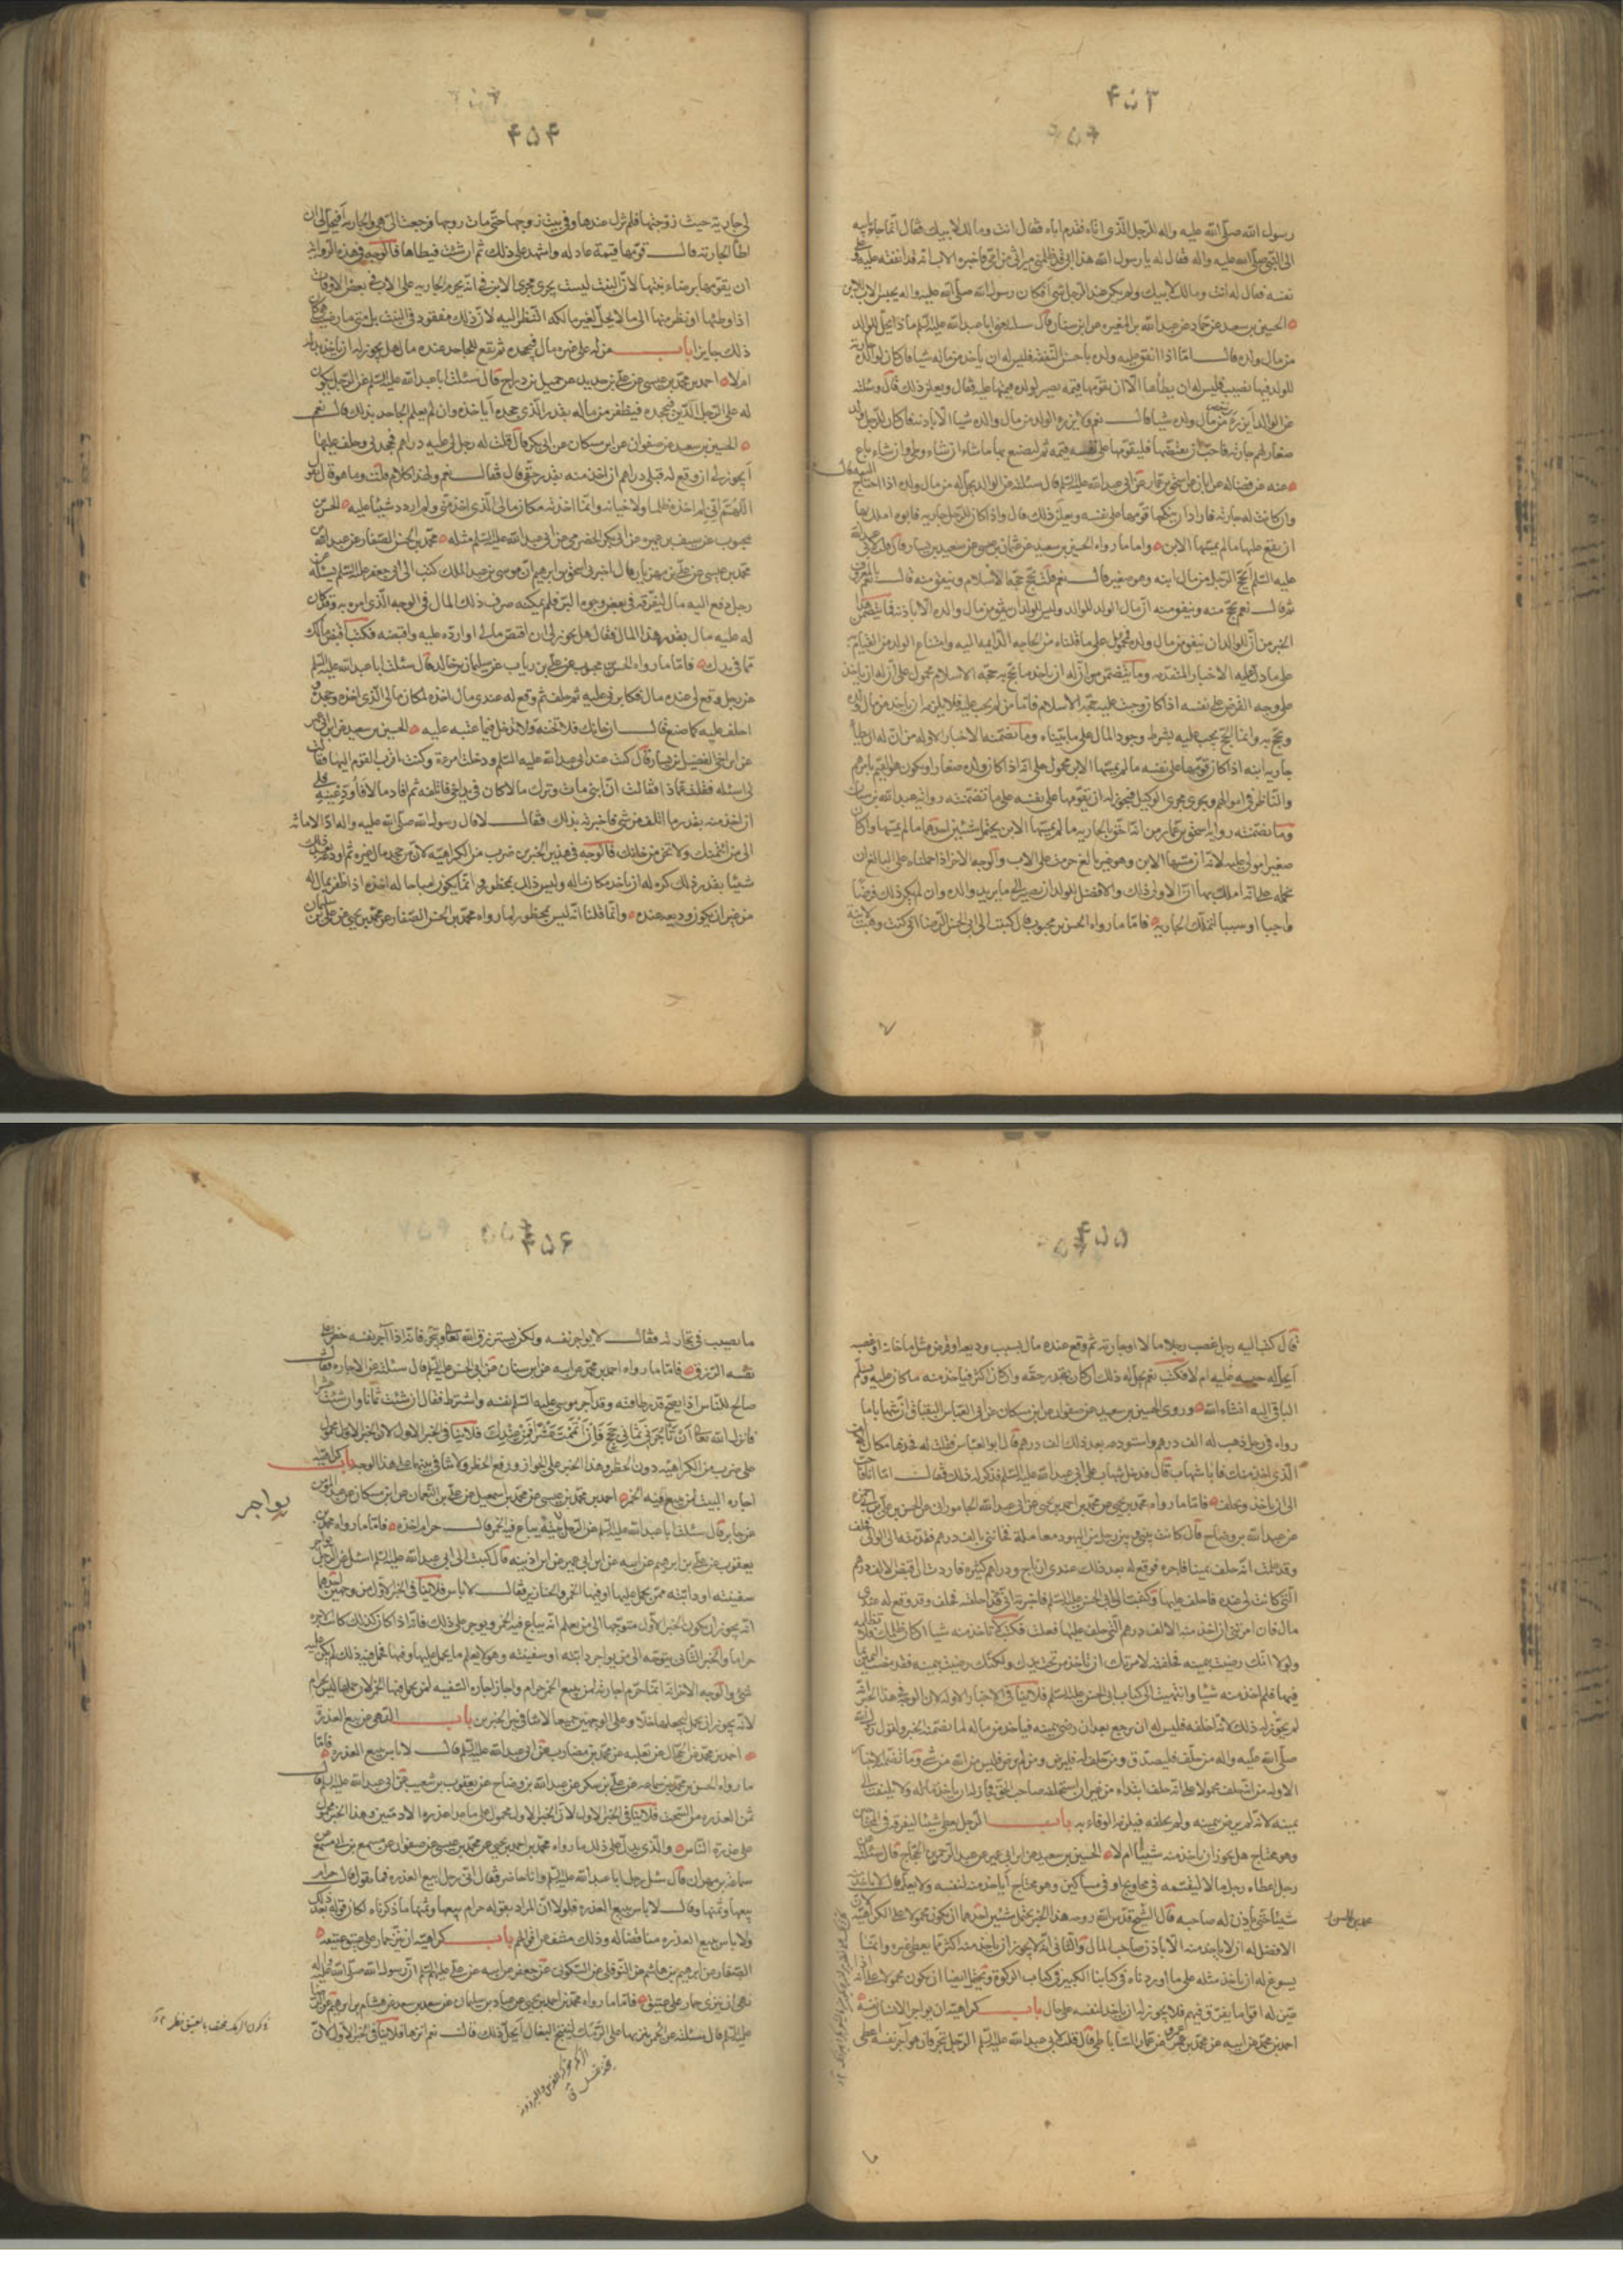 ۴۵۳
رسول الله صلى الله عليه واله للرجل الذى اتاه فقدم اباه فقال انت ومالك لابيك فقال انما جاء بابيه
الى النبى صلى الله عليه واله فقال له يا رسول الله هذا ابى قد ظلمنى ميراثى من امى فاخبره الاب انه قد انفقه عليه وعلى
نفسه فقال له انت ومالك لابيك ولم يكن عند الرجل شئ افكان رسول الله صلى الله عليه واله يحبس الاب للابن
الحسين بن سعيد عن حماد عن عبدالله بن المغيرة عن ابن سنان قال سئلته يعنى ابا عبدالله عليه السلم ماذا يحل للوالد
من مال ولده قال اما اذا انفق عليه ولده باحسن النفقة فليس له ان ياخذ من ماله شيا فان كان لوالده جارية
للولد فيها نصيب فليس له ان يطأها الا ان يقومها قيمة يصير لولده قيمتها عليه قال ويعلن ذلك قال وسئلته
عن الوالد ايرزء من مال ولده شيا قال نعم ولا يرزء الولد من مال والده شيا الا باذنه فان كان للرجل ولد
صغار لهم جارية فاحب ان يفتضها فليقومها على نفسه قيمة ثم ليصنع بها ما شاء ان شاء وطى وان شاء باع
عنه عن فضالة عن ابان عن اسحق بن عمار عن ابى عبدالله عليه السلم قال سئلته عن الوالد يحل له من مال ولده اذا احتاج اليه قال نعم
وان كانت له جارية فاراد ان ينكحها قومها على نفسه ويعلن ذلك قال واذا كان للرجل جارية فابوه املك بها
ان يقع عليها ما لم يمسها الابن واما ما رواه الحسين بن سعيد عن عثمان بن عيسى عن سعيد بن يسار قال قلت لابى عبدالله
عليه السلم ايحج الرجل من مال ابنه وهو صغير قال نعم قلت يحج حجة الاسلام وينفق منه قال نعم بالمعروف
ثم قال نعم يحج منه وينفق منه ان مال الولد للوالد وليس للولد ان ينفق من مال والده الا باذنه فما يتضمن هذا
الخبر من ان للوالد ان ينفق من مال ولده محمول على ما قلناه من الحاجة الداعية اليه وامتناع الولد من القيام به
على ما دل عليه الاخبار المتقدمة وما يتضمن من ان له ان ياخذ ما يحج به حجة الاسلام محمول على ان له ان ياخذ
على وجه القرض على نفسه اذا كان وجبت عليه حجة الاسلام فاما من لم يجب عليه فلا يلزمه ان ياخذ من مال ولده
ويحج به وانما الحج يجب عليه بشرط وجود المال على ما بيناه وما تضمنه الاخبار الاوله من ان له ان يطأ
جارية ابنه اذا كان قومها على نفسه ما لم يمسها الابن محمول على انه اذا كان ولده صغارا ويكون هو القيم بامرهم
والناظر فى اموالهم ويجرى مجرى الوكيل فيجوز له ان يقومها على نفسه على ما تضمنته رواية عبدالله بن سنان
وما تضمنته رواية اسحق بن عمار من انه احق بالجارية ما لم يمسها الابن يحتمل شيئين احدهما ما لم يمسها وان كان
صغيرا مولى عليه لانه ان مسها الابن وهو غير بالغ حرمت على الاب والوجه الاخر اذا حملناه على البالغ ان
نحمله على انه املك بها ان الاولى ذلك والافضل للولد ان يصير الى ما يريد والده وان لم يكن ذلك فرضا
واجبا او سببا لتملك الجارية فاما ما رواه الحسن بن محبوب قال كتبت الى ابى الحسن الرضا انى كنت وهبت لابنة
۴۵۴
لى جارية حيث زوجتها فلم تزل عندها وفى بيت زوجها حتى مات زوجها فرجعت الى هى والجارية افيحل لى ان
اطأ الجارية قال قومها قيمة عادلة واشهد على ذلك ثم ان شئت فطأها فالوجه فى هذه الرواية
ان يقومها برضاء ابنتها لان البنت ليست يجرى مجرى الابن فى انه يحرم الجارية على الاب فى بعض الاوقات
اذا وطئها او نظر منها الى ما لا يحل لغير مالكه النظر اليه لان ذلك مفقود فى البنت بل متى ما رضيت كان
ذلك جايزا باب من له على غيره مال فيجحده ثم تقع للجاحد عنده مال هل يجوز له ان ياخذ بدله
ام لا احمد بن محمد بن عيسى عن على بن حديد عن جميل بن دراج قال سئلت ابا عبدالله عليه السلم عن الرجل يكون
له على الرجل الدين فيجحده فيظفر من ماله بقدر الذى جحده اياخذه وان لم يعلم الجاحد بذلك قال نعم
الحسين بن سعيد عن صفوان عن ابن مسكان عن ابى بكر قال قلت له رجل لى عليه دراهم فجحدنى وحلف عليها
ايجوز لى ان وقع له قبلى دراهم ان اخذ منه بقدر حقى قال فقال نعم ولهذا كلام قلت وما هو قال يقول
اللهم انى لم اخذه ظلما ولا خيانة وانما اخذته مكان مالى الذى اخذ منى ولم ازدد شيئا عليه الحسن بن
محبوب عن سيف بن عميرة عن ابى بكر الحضرمى عن ابى عبدالله عليه السلم مثله محمد بن الحسن الصفار عن عبدالله بن
محمد بن عيسى عن على بن مهزيار قال اخبرنى اسحق بن ابرهيم ان موسى بن عبد الملك كتب الى ابى جعفر عليه السلم يسئله عن
رجل دفع اليه مال ليفرقه فى بعض وجوه البر فلم يمكنه صرف ذلك المال فى الوجه الذى امره به وقد كان
له عليه مال بقدر هذا المال فقال هل يجوز لى ان اقتص مالى او ارده عليه واقتضيه فكتب اقبض مالك
مما فى يدك فاما ما رواه الحسن بن محبوب عن على بن رياب عن سليمان بن خالد قال سئلت ابا عبدالله عليه السلم
عن رجل وقع لى عنده مال فكابرنى عليه ثم حلف ثم وقع له عندى مال اخذه لمكان مالى الذى اخذه وجحده
احلف عليه كما صنع قال ان خانك فلا تخنه ولا تدخل فيما عتبه عليه الحسين بن سعيد عن ابن ابى عمير
عن ابن اخى الفضيل بن يسار قال كنت عند ابى عبدالله عليه السلم ودخلت امرءة وكنت اقرب القوم اليها فقالت
لى اسئله فقلت عما ذا فقالت ان ابنى مات وترك مالا كان فى يد اخى فاتلفه ثم افاد مالا فاودعنيه فلى
ان اخذ منه بقدر ما اتلف من شئ فاخبرته بذلك فقال لا قال رسول الله صلى الله عليه واله اد الامانة
الى من ائتمنك ولا تخن من خانك فالوجه فى هذين الخبرين ضرب من الكراهية لان من جحد مال غيره ثم اودعه
شيئا بقدر ذلك كره له ان ياخذ مكان ماله وليس ذلك بمحظور وانما يكون مباحا له اخذه اذا ظفر بمال له
من غير ان يكون وديعة عنده وانما قلنا انه ليس بمحظور لما رواه محمد بن الحسن الصفار عن محمد بن يحيى عن على بن سليمان
۴۵۵
قال كتب اليه رجل غصب رجلا مالا او جارية ثم وقع عنده مال بسبب وديعة او قرض مثل ما خانه او غصبه
ايحل له حبسه عليه ام لا فكتب نعم يحل له ذلك ان كان بقدر حقه وان كان اكثر فياخذ منه ما كان عليه ويسلم
الباقى اليه انشاء الله وروى الحسين بن سعيد عن صفوان عن ابن مسكان عن ابى العباس البقباق ان شهابا ما
راه فى رجل ذهب له الف درهم واستودعه بعد ذلك الف درهم قال ابو العباس فقلت له خذها مكان الالف
الذى اخذ منك فابا شهاب قال فدخل شهاب على ابى عبدالله عليه السلم فذكر له ذلك فقال اما انا فاحب
الى ان ياخذ ويحلف فاما ما رواه محمد بن يحيى عن محمد بن احمد بن يحيى عن ابى عبدالله الجامورانى عن الحسن بن على بن ابى حمزة
عن عبدالله بن وضاح قال كانت بينى وبين رجل من اليهود معاملة فخاننى بالف درهم فقدمته الى الوالى فحلف
وقد علمت انه حلف يمينا فاجرة فوقع له بعد ذلك عندى ارباح ودراهم كثيرة فاردت ان اقبض الالف درهم
التى كانت لى عنده فاحلف عليها وكتبت الى ابى الحسن عليه السلم فاخبرته انى قد احلفته فحلف وقد وقع له عندى
مال فان امرتنى ان اخذ منه الالف درهم التى حلف عليها فعلت فكتب لا تاخذ منه شيا ان كان ظلمك فلا تظلمه
ولولا انك رضيت بيمينه فحلفته لامرتك ان تاخذ من تحت يدك ولكنك رضيت بيمينه فقد مضت اليمين بما
فيها فلم اخذ منه شيئا وانتهيت الى كتاب ابى الحسن عليه السلم فلا ينافى الاخبار الاوله لان الوجه فى هذا الخبر انما
لم يجوز له ذلك لانه احلفه فليس له ان يرجع بعد ان رضى بيمينه فياخذ من ماله لما تضمنه الخبر ولقول رسول الله
صلى الله عليه واله من حلف فليصدق ومن حلف له فليرض ومن لم يرض فليس من الله من شئ وما تضمنه الاخبار
الاوله من انه حلف محمولا على انه حلف ابتداء من غير ان استحلفه صاحب الحق فجاز له ان ياخذ ماله ولا يلتفت الى
يمينه لانه لم يرض بيمينه ولم يحلفه فيلزمه الوفاء به باب الرجل يعطى شيئا ليفرقه فى المحتاجين
وهو محتاج هل يجوز ان ياخذ منه شيئا ام لا الحسين بن سعيد عن ابن ابى عمير عن عبد الرحمن بن الحجاج قال سئلته عن
رجل اعطاه رجل مالا ليقسمه فى محاويج او فى مساكين وهو محتاج اياخذ منه لنفسه ولا يعلمه قال لا ياخذ منه
شيئا حتى ياذن له صاحبه قال الشيخ قدس الله روحه هذا الخبر يحتمل شيئين احدهما ان يكون محمولا على الكراهية لان
الافضل له ان لا ياخذ منه الا باذن صاحب المال والثانى انه لا يجوز ان ياخذ منه اكثر مما يعطى غيره وانما
يسوغ له ان ياخذ مثله على ما اوردناه فى كتابنا الكبير فى كتاب الزكوة ويحتمل ايضا ان يكون محمولا على انه اذا
عين له اقواما يفرق فيهم فلا يجوز له ان ياخذ لنفسه على حال باب كراهية ان يواجر الانسان نفسه
احمد بن محمد عن ابيه عن محمد بن عمرو عن عمار الساباطى قال قلت لابى عبدالله عليه السلم الرجل يتجر فان هو آجر نفسه اعطى
۴۵۶
ما يصيب فى تجارته فقال لا يواجر نفسه ولكن يسترزق الله تعالى ويتجر فانه اذا آجر نفسه حظر على
نفسه الرزق فاما ما رواه احمد بن محمد عن ابيه عن ابن سنان عن ابى الحسن عليه السلم قال سئلته عن الاجارة فقال
صالح للناس اذا نصح قدر طاقته وقد آجر موسى عليه السلم نفسه واشترط فقال ان شئت ثمانا وان شئت عشرا
فانزل الله تعالى ان تاجرنى ثمانى حجج فان اتممت عشرا فمن عندك فلا ينافى الخبر الاول لان الخبر الاول محمول
على ضرب من الكراهية دون الحظر وهذا الخبر على الجواز ورفع الحظر ولا تنافى بينهما على هذا الوجه باب كراهية
اجارة البيت لمن يبيع فيه الخمر احمد بن محمد بن عيسى عن محمد بن اسمعيل عن على بن النعمان عن ابن مسكان عن عبد المؤمن
عن جابر قال سئلت ابا عبدالله عليه السلم عن الرجل يواجر بيته يباع فيه الخمر قال حرام اجرته فاما ما رواه محمد بن
يعقوب عن على بن ابرهيم عن ابيه عن ابن ابى عمير عن ابن اذينة قال كتبت الى ابى عبدالله عليه السلم اسئله عن الرجل يواجر
سفينته او دابته ممن يحمل عليها او فيها الخمر والخنازير فقال لا باس فلا ينافى الخبر الاول من وجهين احدهما
انه يجوز ان يكون الخبر الاول متوجها الى من يعلم انه يباع فيه الخمر ويوجر على ذلك فانه اذا كان كذلك كانت الاجرة
حراما والخبر الثانى يتوجه الى من يواجر دابته او سفينته وهو لا يعلم ما يحمل عليها وفيها فحمل فيه ذلك لم يكن عليه
شئ والوجه الاخر انه انما حرم اجارة لمن يبيع الخمر لان بيع الخمر حرام واجاز اجارة السفينة لمن يحمل فيها الخمر لان حملها ليس بحرام
لانه يجوز ان يحمل ليجعلها خلا وعلى الوجهين جميعا لا تنافى بين الخبرين باب النهى عن بيع العذرة
احمد بن محمد عن الحجال عن ثعلبة عن محمد بن مضارب عن ابى عبدالله عليه السلم قال لا باس ببيع العذرة فاما
ما رواه الحسن بن محمد بن سماعة عن على بن سكن عن عبدالله بن وضاح عن يعقوب بن شعيب عن ابى عبدالله عليه السلم قال
ثمن العذرة من السحت فلا ينافى الخبر الاول لان الخبر الاول محمول على ما عدا عذرة الادميين وهذا الخبر محمول
على عذرة الناس والذى يدل على ذلك ما رواه محمد بن احمد بن يحيى عن محمد بن عيسى عن صفوان عن مسمع بن ابى مسمع عن
سماعة بن مهران قال سئل رجل ابا عبدالله عليه السلم وانا حاضر فقال انى رجل ابيع العذرة فما تقول قال حرام
بيعها وثمنها وقال لا باس ببيع العذرة فلولا ان المراد بقوله حرام بيعها وثمنها ما ذكرناه لكان قوله بعد ذلك
ولا باس ببيع العذرة مناقضا له وذلك منتف من اقوالهم باب كراهية ان ينزى حمار على عتيقة
الصفار عن ابرهيم بن هاشم عن النوفلى عن السكونى عن جعفر عن ابيه عن على عليهم السلم ان رسول الله صلى الله عليه واله
نهى ان ينزى حمار على عتيق فاما ما رواه محمد بن احمد بن يحيى عن عباد بن سليمان عن سعد بن سعد عن هشام بن ابرهيم عن الرضا
عليه السلم قال سئلته عن الحمير ننزيها على الرمك لتنتج البغال ايحل ذلك قال نعم انزها فلا ينافى الخبر الاول لان
يواجر